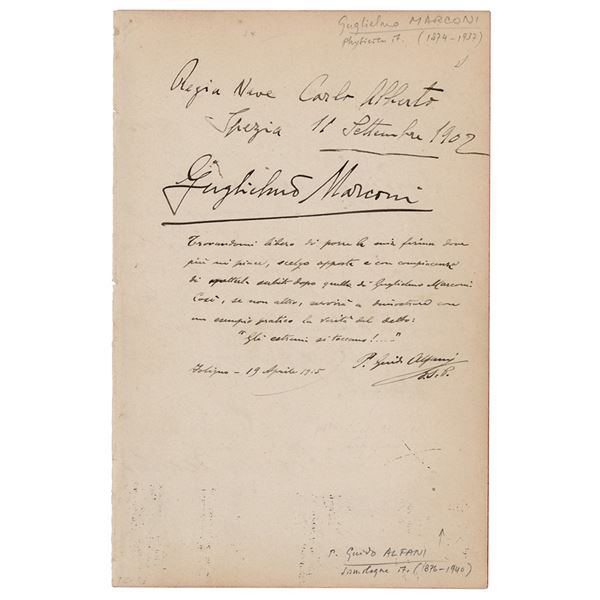 Guglielmo MARCONI
physicien it. (1874-1937)
Regia Nave Carlo Alberto
Spezia 11 Settembre 1902
Guglielmo Marconi
Trovandomi libero di porre la mia firma dove
più mi piace, scelgo apposta e con compiacenza
di metterla subito dopo quella di Guglielmo Marconi
Così, se non altro, servirà a dimostrare con
un esempio pratico la verità del detto:
"Gli estremi si toccano!..."
P. Guido Alfani
Foligno - 19 Aprile 1915
S.P.
P. Guido ALFANI
it. (1876-1940)